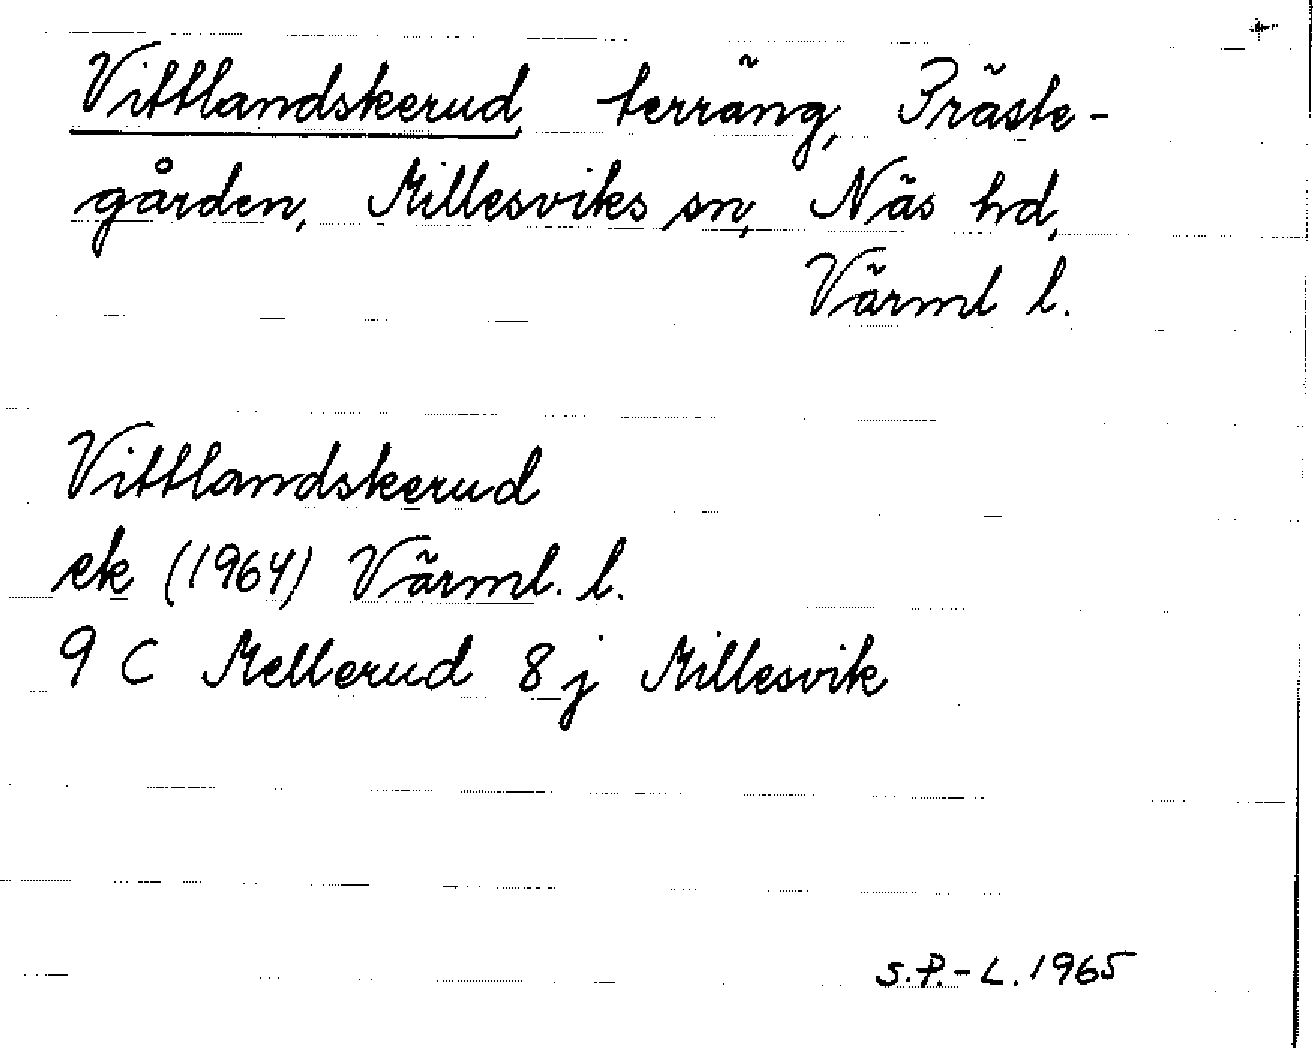 Vittlandskerud terräng, Präste-
gården, Millesviks sn, Näs hd,
Värml l.
Vittlandskerud
ek (1964) Värml. l.
9 C Mellerud 8 j Millesvik
S.P.-L. 1965